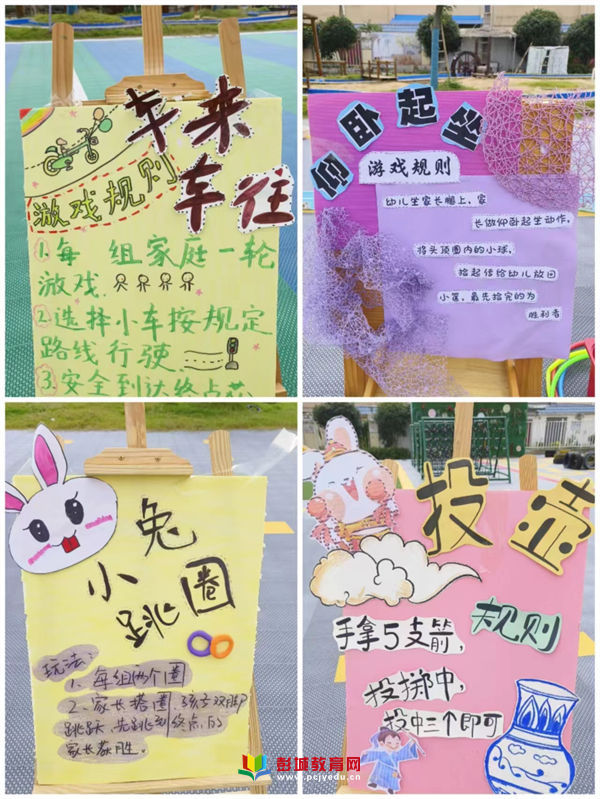 车来
车往
游戏规则
1.每 组家庭一轮
游戏.
2.选择小车按规定
路线行驶.
3.安全到达终点
仰卧起坐
游戏规则
幼儿坐家长腿上,家
长做仰卧起坐动作,
将头顶圈内的小球,
拾起传给幼儿放回
小筐,最先拾完的为
胜利者
小兔
跳圈
玩法:
1、每组两个圈
2、家长搭圈,孩子双脚
跳跃,先跳到终点的
家长获胜.
投壶
规则
手拿5支箭,
投掷中,
投中三个即可
彭城教育网
www.pcjyedu.cn